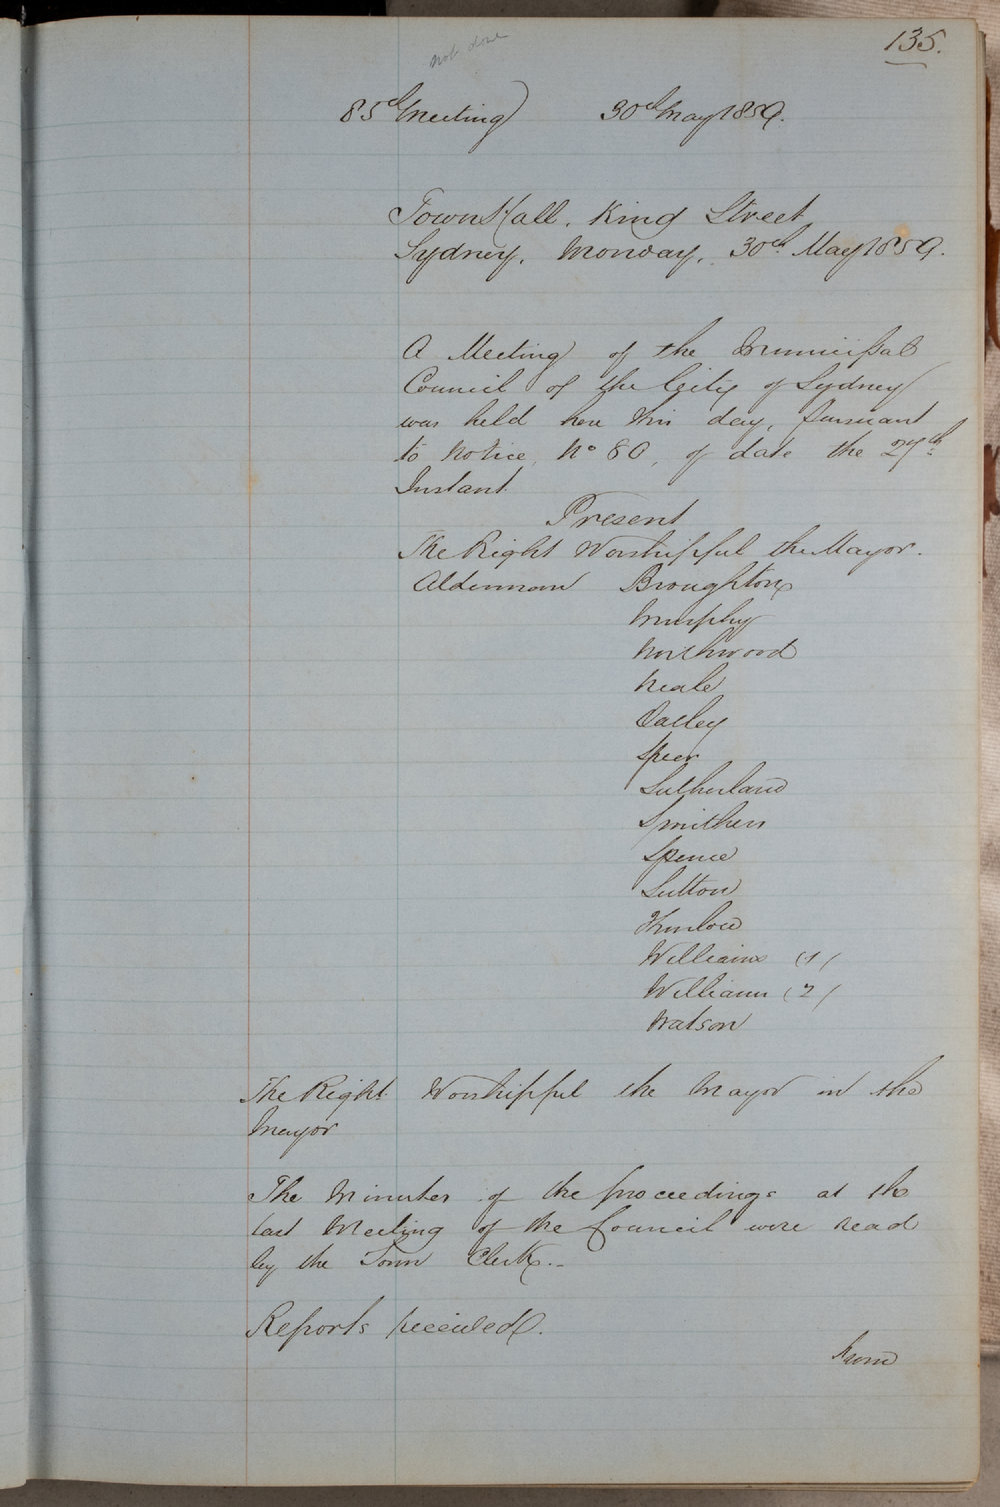 135.
not done
85th Meeting 30th May 1859.
Town Hall, King Street
Sydney, Monday, 30th May 1859.
A Meeting of the Municipal
Council of the City of Sydney
was held here this day, pursuant
to Notice, No 80, of date the 27th
Instant.
Present
The Right Worshipful the Mayor.
Alderman Broughton
Murphy
Northwood
Neale
Oatley
Speer
Sutherland
Smithers
Spence
Sutton
Thurlow
Williams (1)
Williams (2)
Watson
The Right Worshipful the Mayor in the
Mayor
The Minutes of the proceedings at the
last Meeting of the Council were read
by the Town Clerk.
Reports received.
From